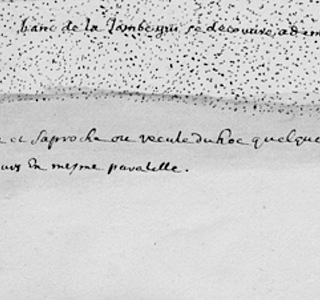 banc de la Jambe qui se decouvre a dem
et saproche ou recule du hoc quelque
urs En mesme paralelle.